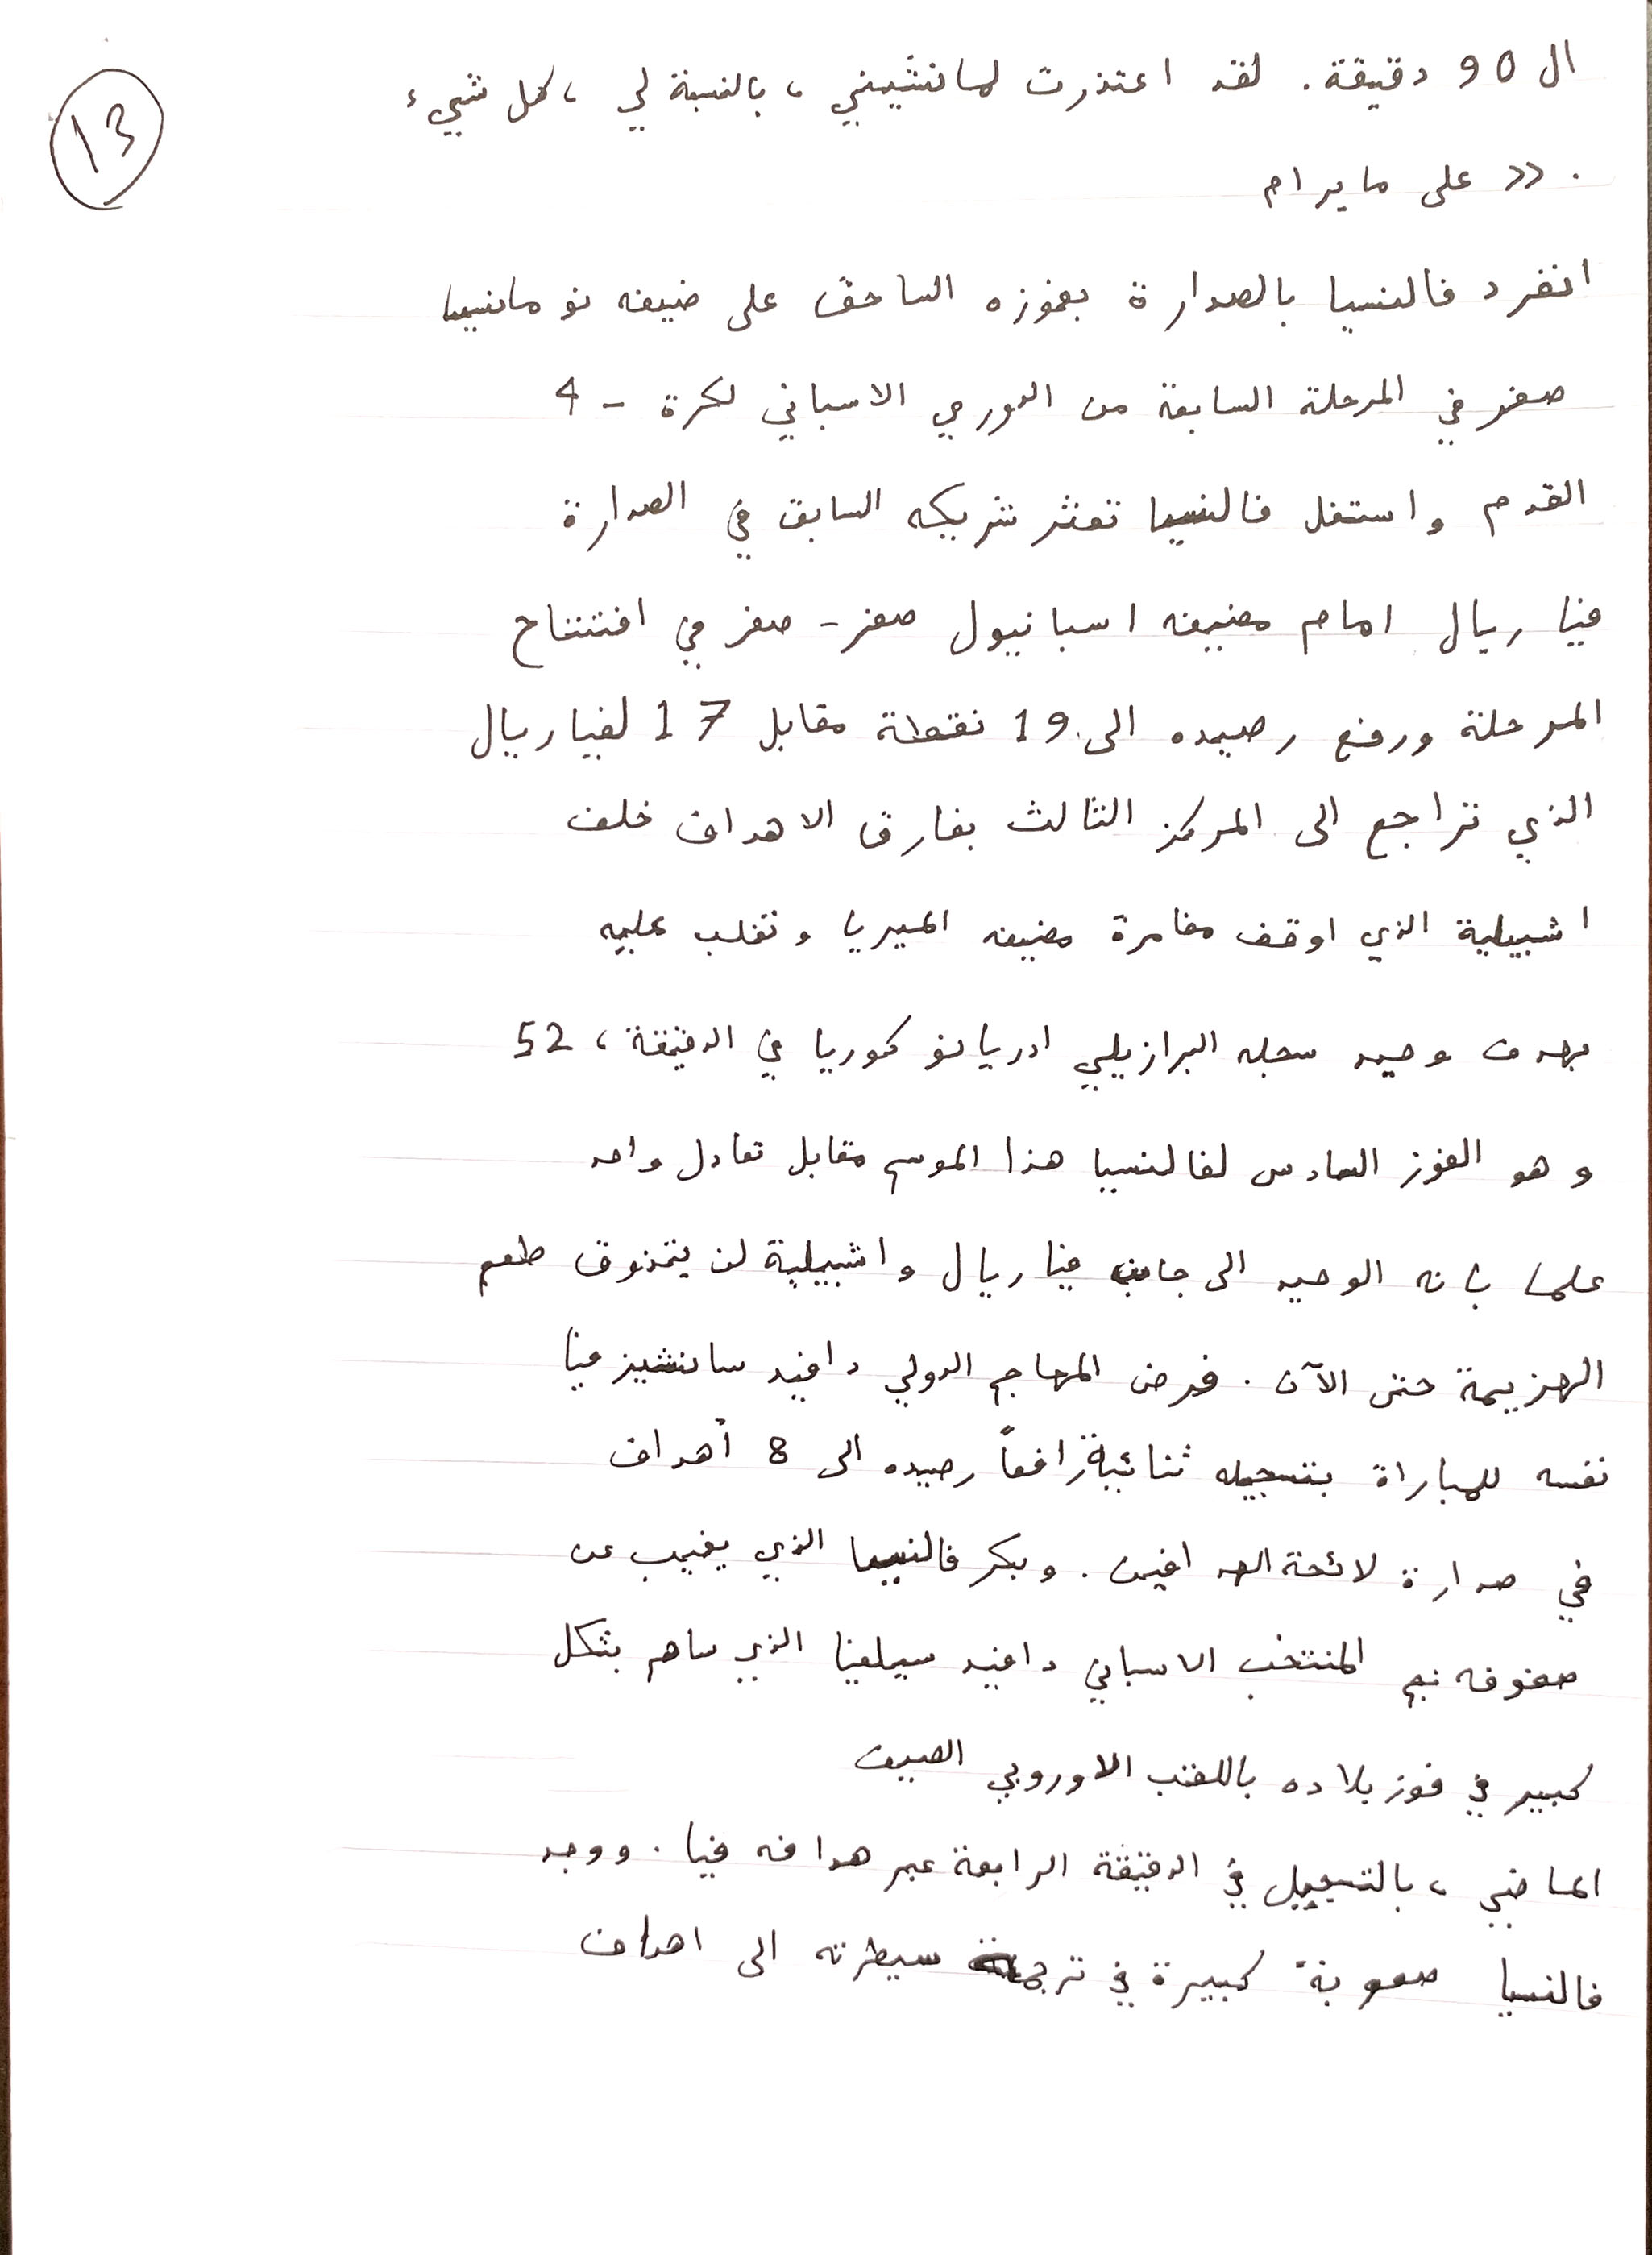 13
ال 90 دقيقة. لقد اعتذرت لمانشيني، بالنسبة لي، كل شيء
. >> على ما يرام
انفرد فالنسيا بالصدارة بفوزه الساحق على ضيفه نومانسيا
صفر في المرحلة السابعة من الدوري الاسباني لكرة - 4
القدم واستغل فالنسيا تعثر شريكه السابق في الصدارة
فيا ريال امام مضيفه اسبانيول صفر - صفر في افتتاح
المرحلة ورفع رصيده الى 19 نقطة مقابل 17 لفيا ريال
الذي تراجع الى المركز الثالث بفارق الاهداف خلف
اشبيلية الذي اوقف مغامرة مضيفه الميريا وتغلب عليه
بهدف وحيد سجله البرازيلي ادريانو كوريا في الدقيقة، 52
وهو الفوز السادس لفالنسيا هذا الموسم مقابل تعادل واحد
علما بانه الوحيد الى جانب فيا ريال واشبيلية لن يتذوق طعم
الهزيمة حتى الآن. فرض المهاجم الدولي دافيد سانشيز فيا
نفسه للمباراة بتسجيله ثنائية رافعاً رصيده الى 8 أهداف
في صدارة لائحة الهدافين. وبكر فالنسيا الذي يغيب عن
صفوفه نجم المنتخب الاسباني دافيد سيلفيا الذي ساهم بشكل
كبير في فوز بلاده باللقب الاوروبي الصيف
الماضي، بالتسجيل في الدقيقة الرابعة عبر هدافه فيا. ووجد
فالنسيا صعوبة كبيرة في ترجمة سيطرته الى اهداف